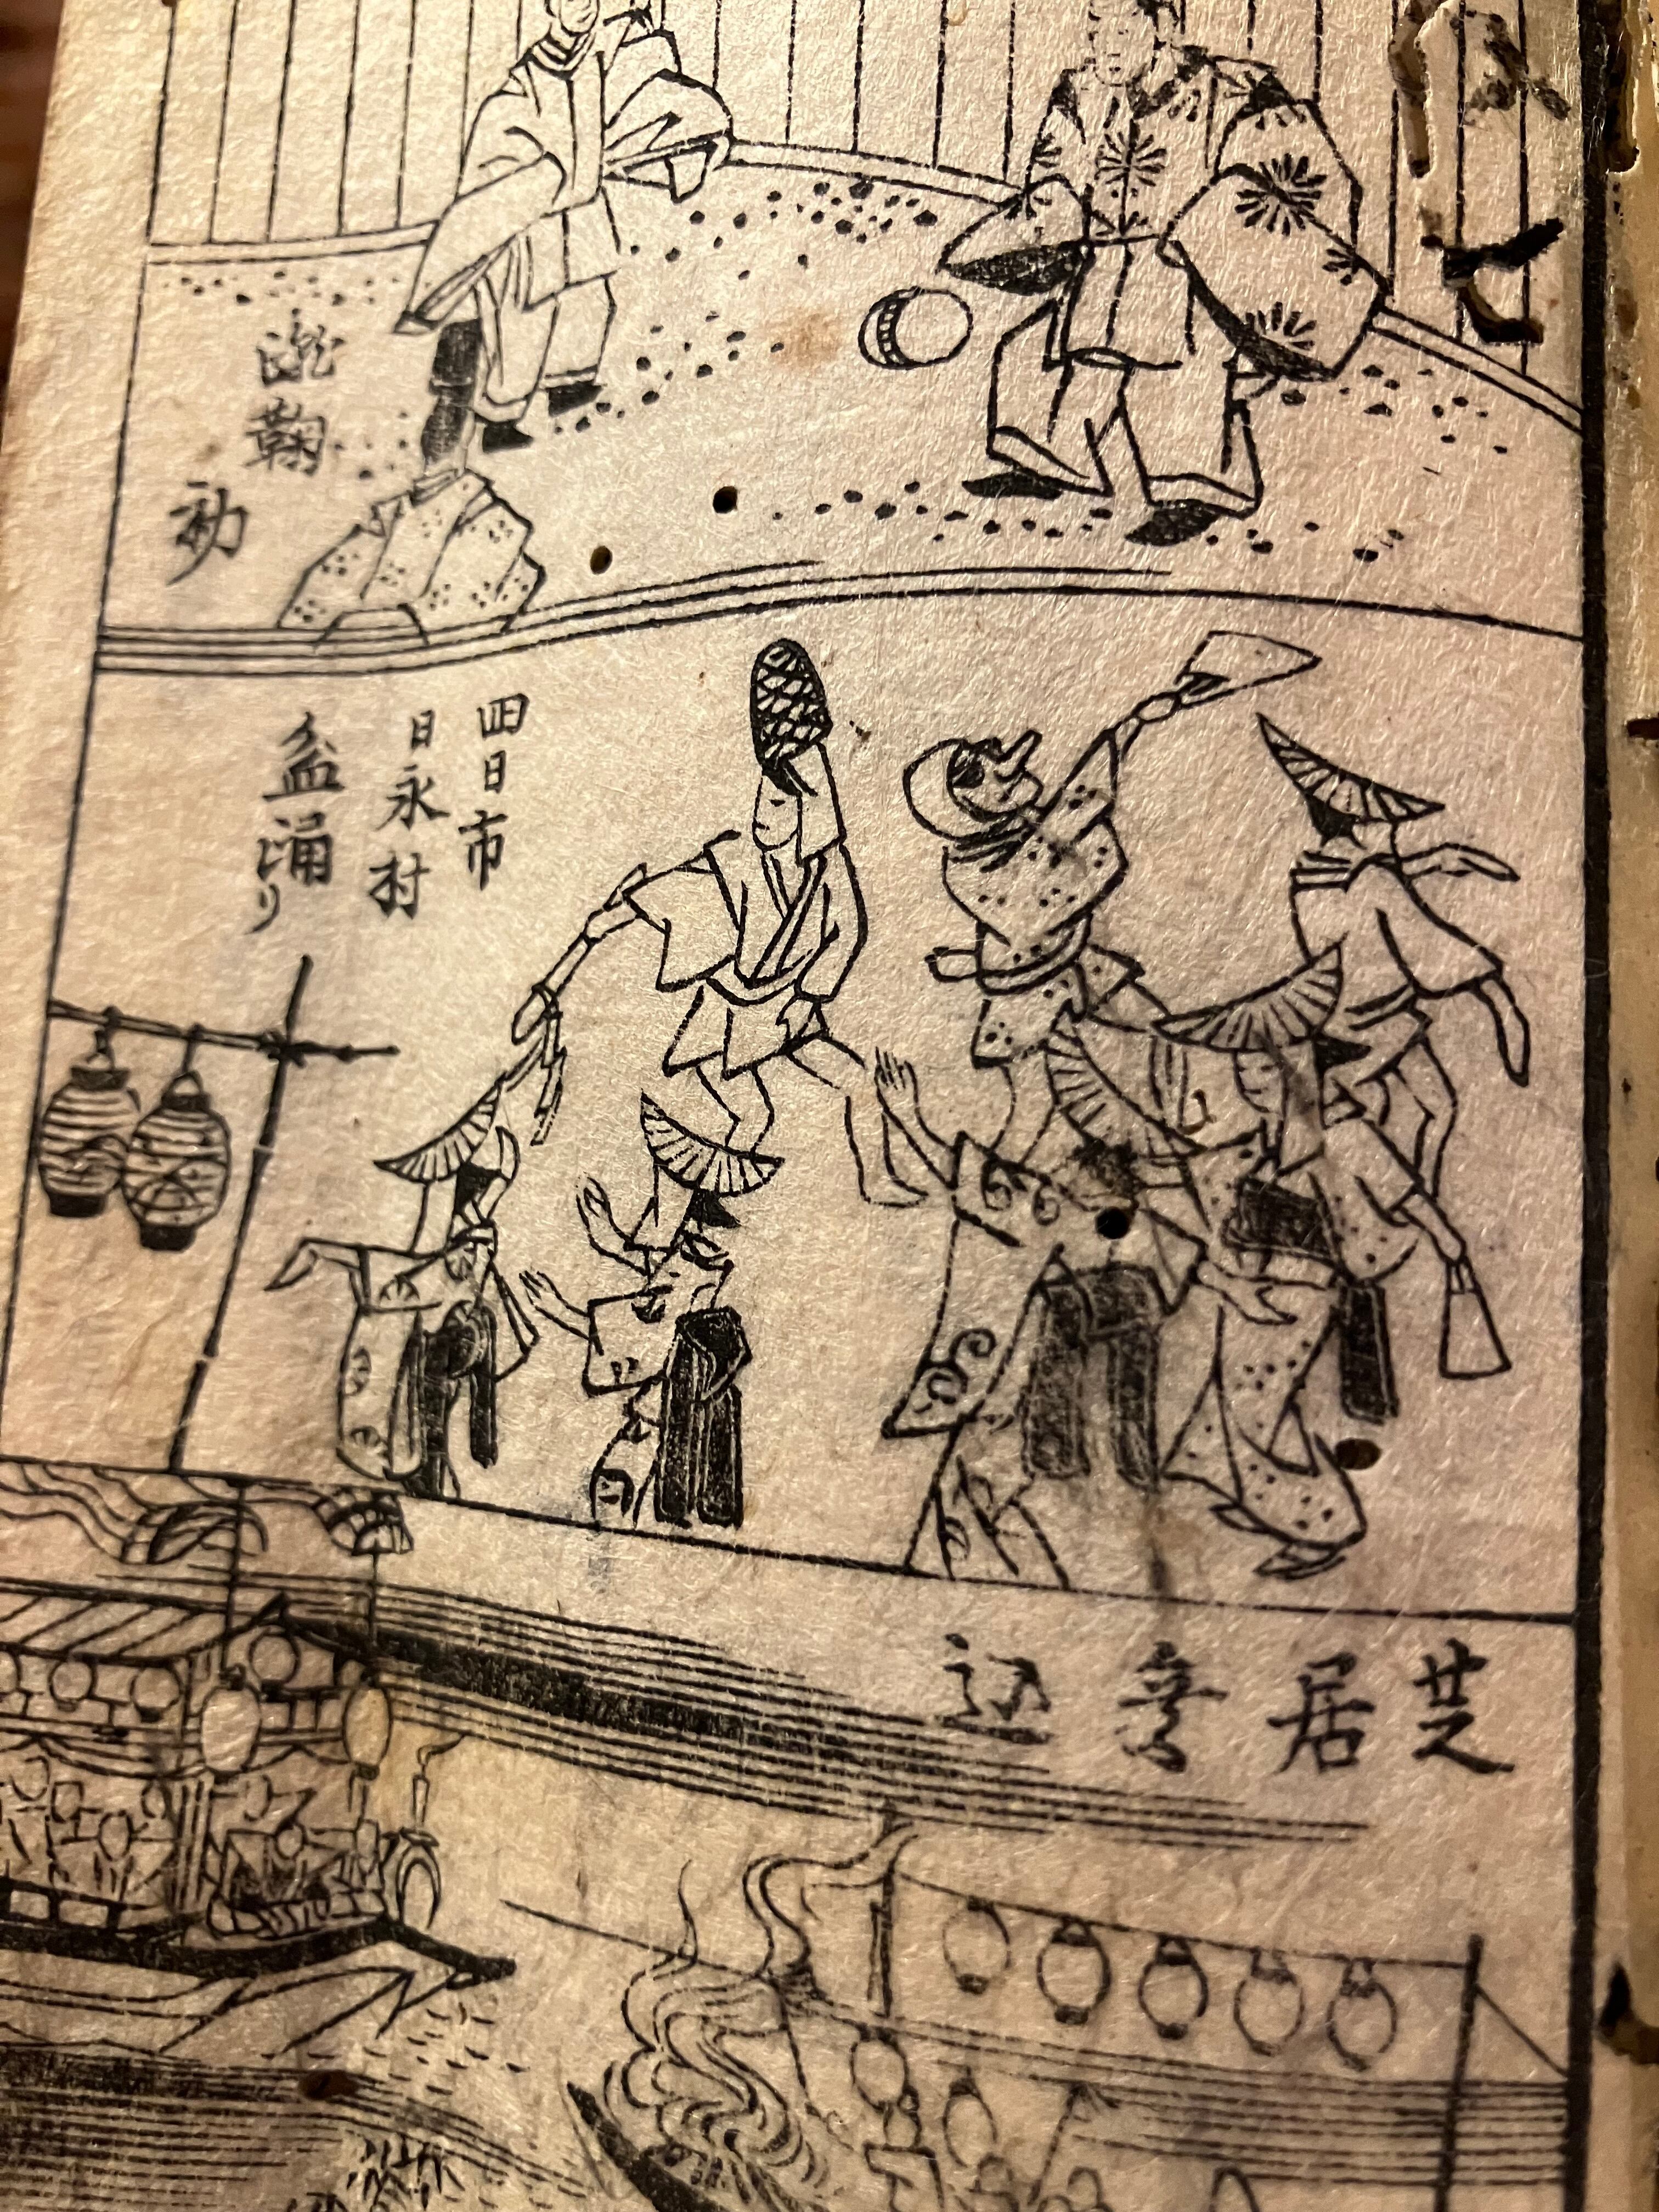 蹴鞠
初
四日市
日永村
盆踊り
芝居